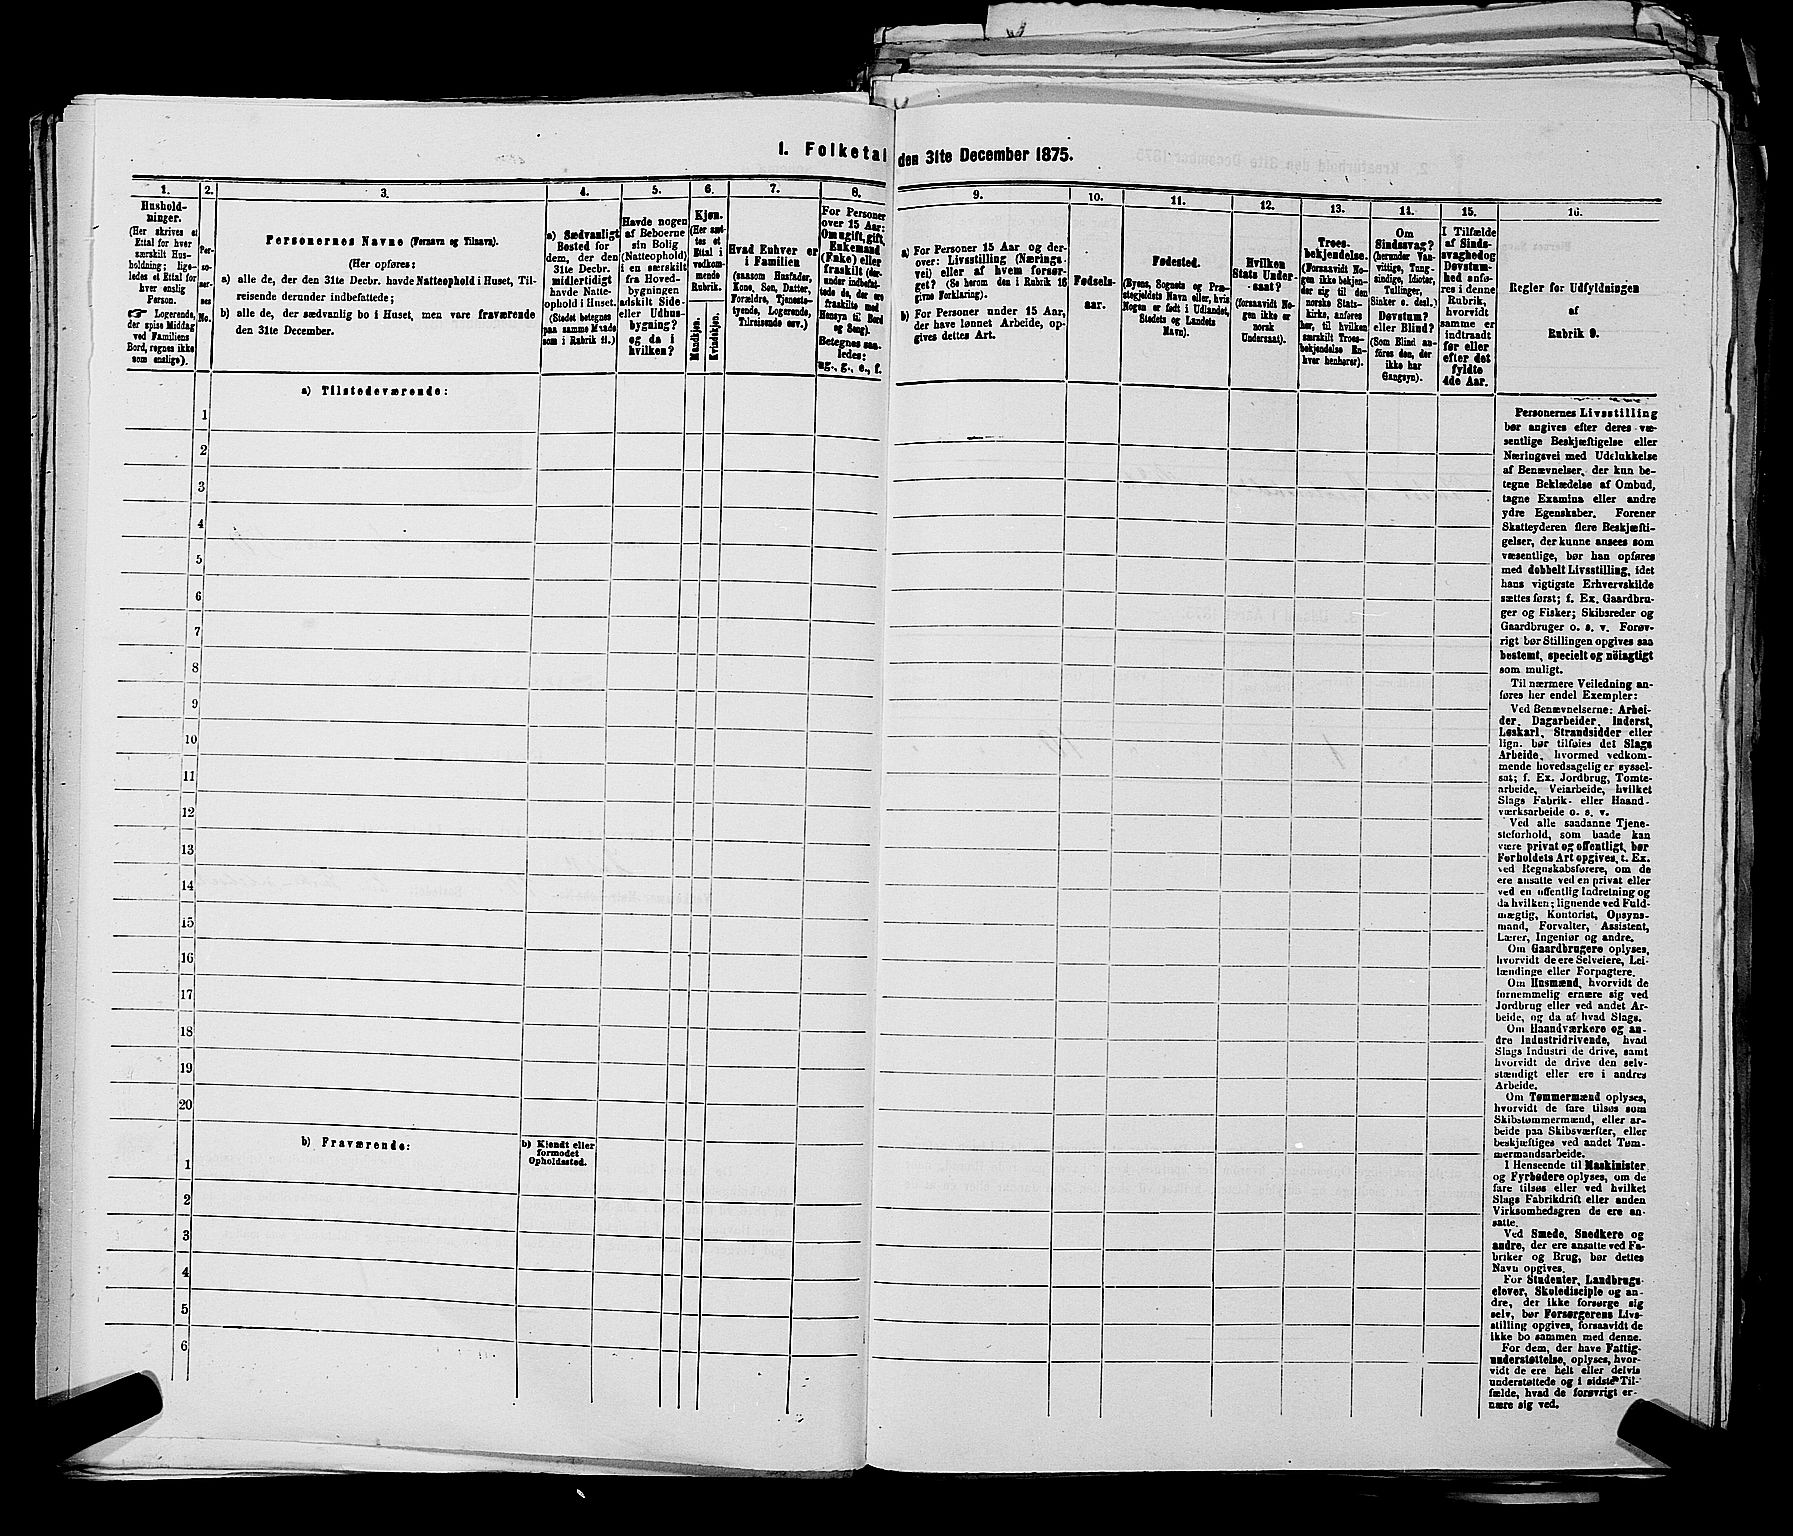 1. Folketal den 31te December 1875.
1. 2. 3. 4. 5. 6. 7. 8. 9. 10. 11. 12. 13. 14. 15. 16.
Hushold-
ninger.
(Her skrives et
Ettal for hver
særskilt Hus-
holdning; lige-
ledes et Ettal for
hver enslig
Person.
☞ Logerende,
der spise Middag
ved Familiens
Bord, regnes ikke
som enslige).
Per-
so-
ner-
nes
No.
Personernes Navne (Fornavn og Tilnavn).
(Her opføres:
a) alle de, der den 31te Decbr. havde Natteophold i Huset, Til-
reisende derunder indbefattede;
b) alle de, der sædvanlig bo i Huset, men vare fraværende
den 31te December.
a) Sædvanligt
Bosted for
dem, der den
31te Decbr.
midlertidigt
havde Natte-
ophold i Huset.
(Stedet betegnes
paa samme Maade
som i Rubrik 11.)
Havde nogen
af Beboerne
sin Bolig
(Natteophold)
i en særskilt
fra Hoved-
bygningen
adskilt Side-
eller Udhus-
bygning?
og da i
hvilken?
Kjøn.
(Her sæt-
tes et
Ettal i
vedkom-
mende
Rubrik.
Mandkjøn.
Kvindekjøn.
Hvad Enhver er
i Familien
(saasom Husfader,
Kone, Søn, Datter,
Forældre, Tjeneste-
tyende, Logerende,
Tilreisende osv.)
For Personer
over 15 Aar:
Om ugift, gift,
Enkemand
(Enke) eller
fraskilt (der-
under indbefat-
tede de, der ere
fraskilte med
Hensyn til Bord
og Seng).
Betegnes saa-
ledes:
ug., g., e., f.
a) For Personer 15 Aar og der-
over: Livsstilling (Nærings-
vei) eller af hvem forsør-
get? (Se herom den i Rubrik 16
givne Forklaring).
b) For Personer under 15 Aar,
der have lønnet Arbeide, op-
gives dettes Art.
Fødsels-
aar.
Fødested.
(Byens, Sognets og Præ-
stegjeldets Navn eller, hvis
Nogen er født i Udlandet,
Stedets og Landets
Navn).
Hvilken
Stats Under-
saat?
(foraavidt No-
gen ikke er
norsk
Undersaat).
Troes-
bekjendelse.
(Forsaavidt No-
gen ikke bekjen-
der sig til den
norske Stats-
kirke, anføres
her, til hvilken
særskilt Troes-
bekjendelse En-
hver henhører).
Om
Sindssvag?
(herunder Van-
vittige, Tung-
sindige, Idioter,
Tullinger,
Sinker o. desl.)
Døvstum?
eller Blind?
(Som Blind an-
føres den, der
ikke har
Gangsyn).
I Tilfælde
af Sinds-
svaghed og
Døvstum-
hed anfø-
res i denne
Rubrik,
hvorvidt
samme er
indtraadt
før eller
efter det
fyldte
4de Aar.
Regler for Udfyldningen
af
Rubrik 9.
a) Tilstedeværende:
1
2
3
4
5
6
7
8
9
10
11
12
13
14
15
16
17
18
19
20
b) Fraværende:
b) Kjendt eller
formodet
Opholdssted.
1
2
3
4
5
6
Personernes Livsstilling
bør angives efter deres væ-
sentlige Beskjæftigelse eller
Næringsvei med Udelukkelse
af Benævnelser, der kun be-
tegne Beklædelse af Ombud,
tagne Examina eller andre
ydre Egenskaber. Forener
Skatteyderen flere Beskjæfti-
gelser, der kunne ansees som
væsentlige, bør han opføres
med dobbelt Livsstilling, idet
hans vigtigste Erhvervskilde
sættes først; f. Ex. Gaardbru-
ger og Fisker; Skibsreder og
Gaardbruger o. s. v. Forøv-
rigt bør Stillingen opgives saa
bestemt, specielt og nöiagtigt
som muligt.
Til nærmere Veiledning an-
føres her endel Exempler:
Ved Benævnelserne: Arbei-
der, Dagarbeider, Inderst,
Løskarl, Strandsidder eller
lign. bør tilføies det Slags
Arbeide, hvormed vedkom-
mende hovedsagelig er syssel-
sat; f. Ex. Jordbrug, Tomte-
arbeide, Veiarbeide, hvilket
Slags Fabrik- eller Haand-
værksarbeide o. s. v.
Ved alle saadanne Tjene-
steforhold, som baade kan
være privat og offentligt, bør
Forholdets Art opgives, t. Ex.
ved Regnskabsførere, om de
ere ansatte ved en privat eller
ved en offentlig Indretning og
da hvilken; lignende ved Fuld-
mægtig, Kontorist, Opsyns-
mand, Forvalter, Assistent,
Lærer, Ingeniør og andre.
Om Gaardbrugere oplyses,
hvorvidt de ere Selveiere, Lei-
lændinge eller Forpagtere.
Om Husmænd, hvorvidt de
fornemmelig ernære sig ved
Jordbrug eller ved andet Ar-
beide, og da af hvad Slags.
Om Haandværkere og an-
dre Industridrivende, hvad
Slags Industri de drive, samt
hvorvidt de drive den selv-
stændigt eller ere i andres
Arbeide.
Om Tømmermænd oplyses,
hvorvidt de fare tilsøs som
Skibstømmermænd, eller ar-
beide paa Skibsværfter, eller
beskjæftiges ved andet Tøm-
mermandsarbeide.
I Henseende til Maskinister
og Fyrbødere oplyses, om de
fare tilsøs eller ved hvilket
Slags Fabrikdrift eller anden
Virksomhedsgren de ere an-
satte.
Ved Smede, Snedkere og
andre, der ere ansatte ved Fa-
briker og Brug, bør dettes
Navn opgives.
For Studenter, Landbrugs-
elever, Skoledisciple og an-
dre, der ikke forsørge sig
selv, bør Forsørgerens Livs-
stilling opgives, forsaavidt de
ikke bo sammen med denne.
For dem, der have Fattig-
understøttelse, oplyses, hvor-
vidt de ere helt eller delvis
understøttede og i sidste Til-
fælde, hvad de forøvrigt er-
nære sig ved.